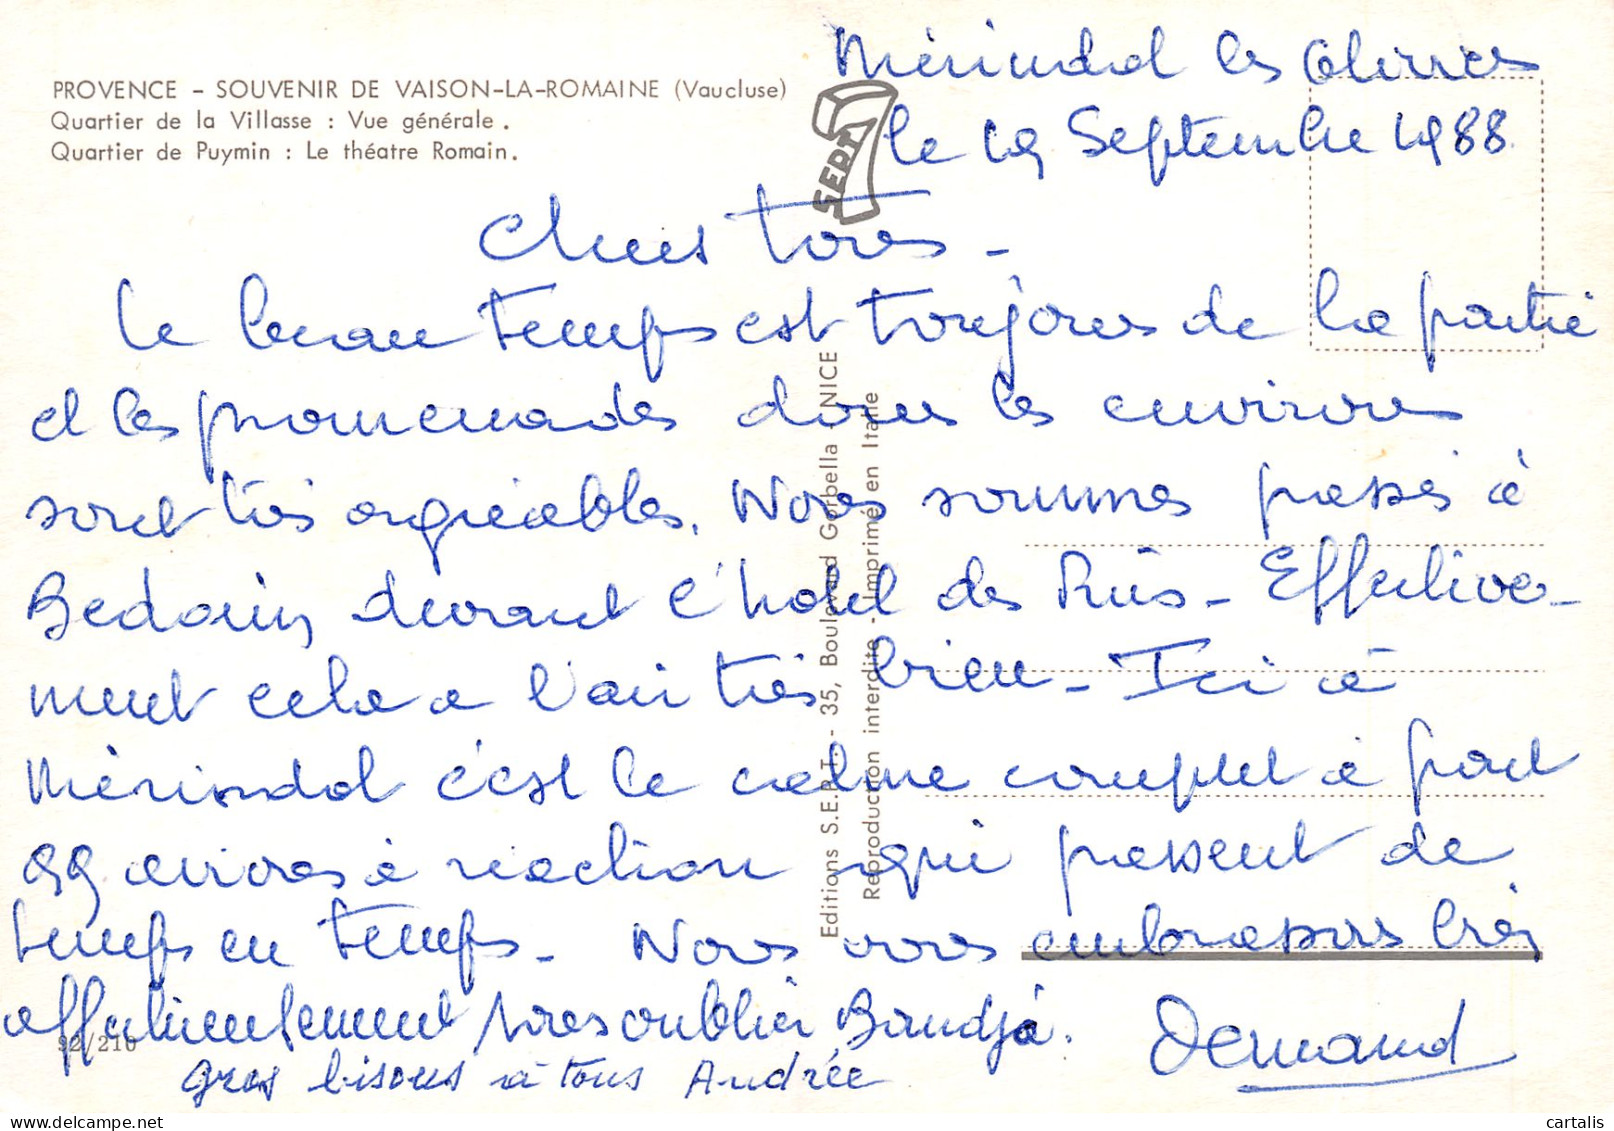 PROVENCE - SOUVENIR DE VAISON-LA-ROMAINE (Vaucluse)
Quartier de la Villasse : Vue générale.
Quartier de Puymin : Le théatre Romain.
SERT
Mérindol les Oliviers
le 19 Septembre 1988
Chers Tous -
Le beau temps est toujours de la partie
et les promenades dans les environs
sont très agréables. Nous sommes passés à
Bedoin devant l'hotel des Pins - Effective-
ment cela a l'air très bien - Ici à
Mérindol c'est le calme complet à part
qq avions à réaction qui passent de
temps en temps - Nous vous embrassons très
affectueusement sans oublier Bandjà.
Gros bisous à tous Andrée
Editions S.E.R.T. - 35, Boulevard Gorbella - NICE
Reproduction interdite - Imprimé en Italie
92/210
cartalis
www.delcampe.net